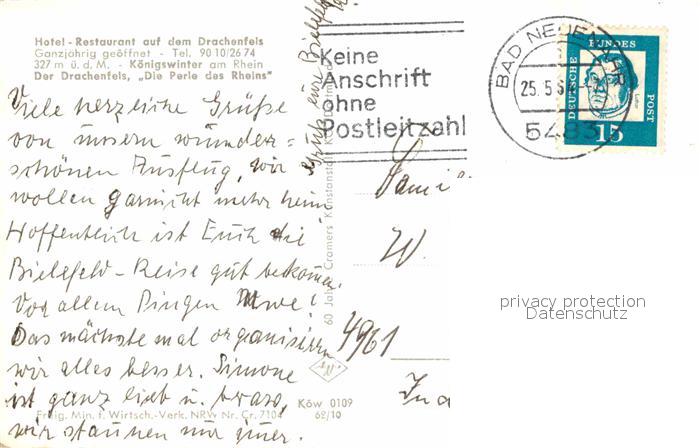 Hotel-Restaurant auf dem Drachenfels
Ganzjährig geöffnet - Tel. 90 10/26 74
327 m ü. d. M. - Königswinter am Rhein
Der Drachenfels, „Die Perle des Rheins"
Viele herzliche Grüße
von unserm wunder=
schönen Ausflug, wir
wollen garnicht mehr heim
Hoffentlich ist Euch die
Bielefeld-Reise gut bekommen
Vor allem Dingen Uwe!
Das nächste mal organisieren
wir alles besser. Simone
ist ganz lieb u. brav,
wir staunen nur immer.
Gruß eure Bielefel
Freig. Min. f. Wirtsch.-Verk. NRW Nr. Cr. 7104
Köw 0109
62/10
60 Jahre Cramers Kunstanstalt KG, Dortmund
Keine
Anschrift
ohne
Postleitzahl
BAD NEUENAHR
25.5.6
5483
DEUTSCHE BUNDESPOST
Luther
15
Fami
W.
4961
privacy protection
Datenschutz